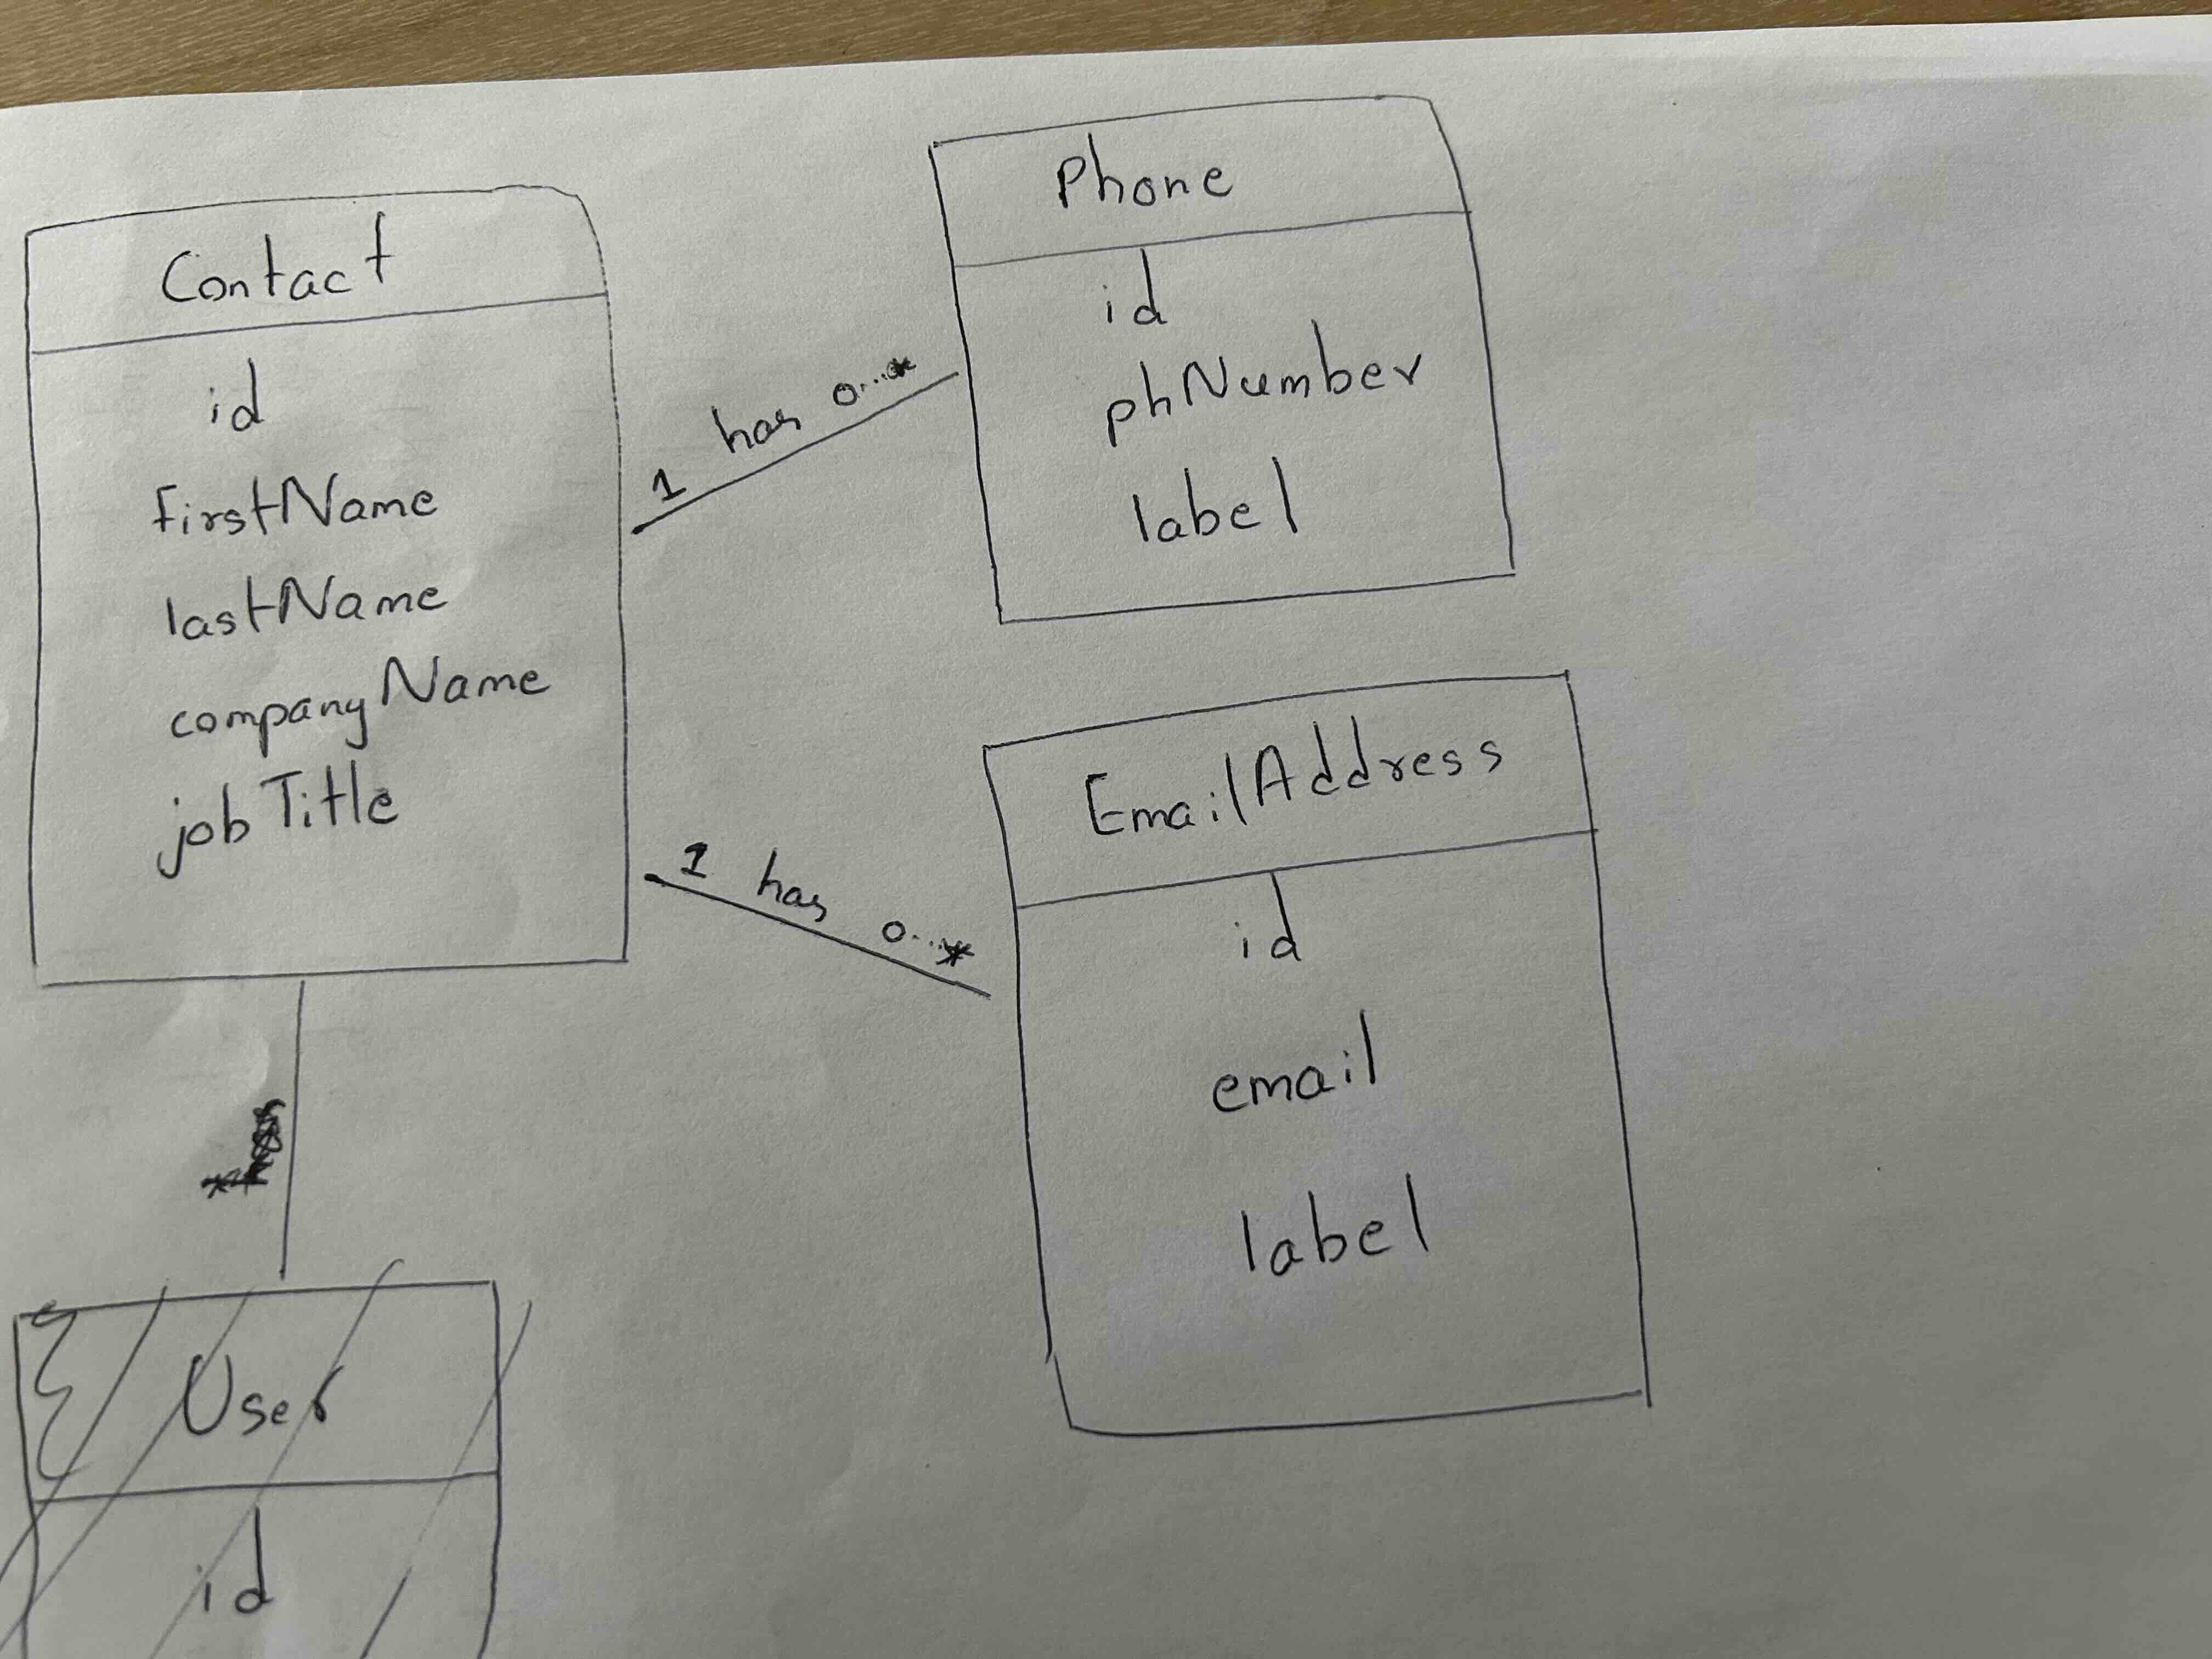 Contact
id
firstName
lastName
companyName
jobTitle
1 has 0...*
Phone
id
phNumber
label
1 has 0...*
EmailAddress
id
email
label
*
User
id